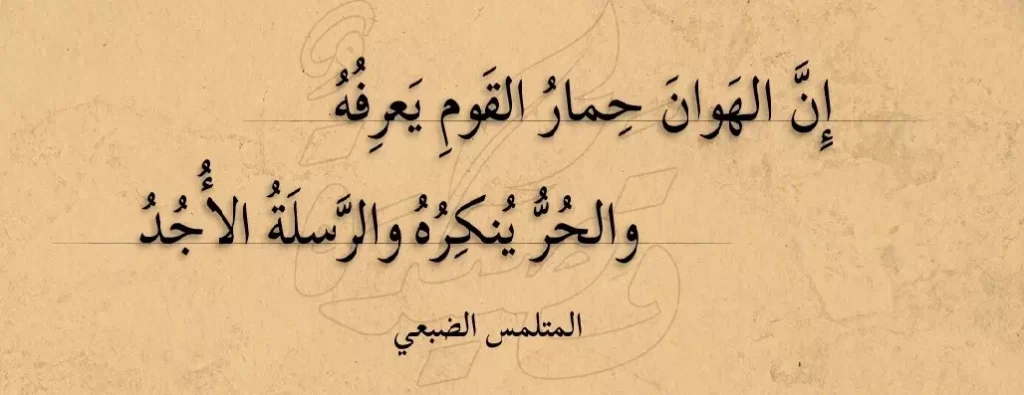 إِنَّ الهَوانَ حِمارُ القَومِ يَعرِفُهُ
والحُرُّ يُنكِرُهُ والرَّسلَةُ الأُجُدُ
المتلمس الضبعي